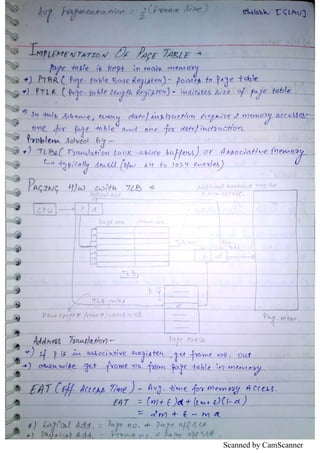 Avg fragmentation = 1/2 (Frame size)
Shalabh [SLAU]
IMPLEMENTATION OF PAGE TABLE →
Page table is kept in main memory
•) PTBR (Page table Base Register) - points to page table
•) PTLR (Page-table length Register) - indicates size of page table
•) In this scheme, every data/instruction requires 2 memory accesses-
one for page table and one for data/instruction.
Problem solved by -
•) TLBs (Translation look-aside buffers) or Associative memory
↳ typically small (b/w 64 to 1024 entries)
PAGING H/W with TLB →
CPU → P d
Page no. Frame no.
TLB
TLB miss
Page table
Address Translation -
•) If p is in associative register, get frame no. out
•) otherwise get frame no. from page table in memory.
EAT (Eff. Access Time) - Avg. time for memory access.
EAT = (m+ε)α + (2m+ε)(1-α)
= 2m + ε - mα
•) Logical Add. = Page no. + Page offset
•) Physical Add. = Frame no. + Page offset.
Scanned by CamScanner